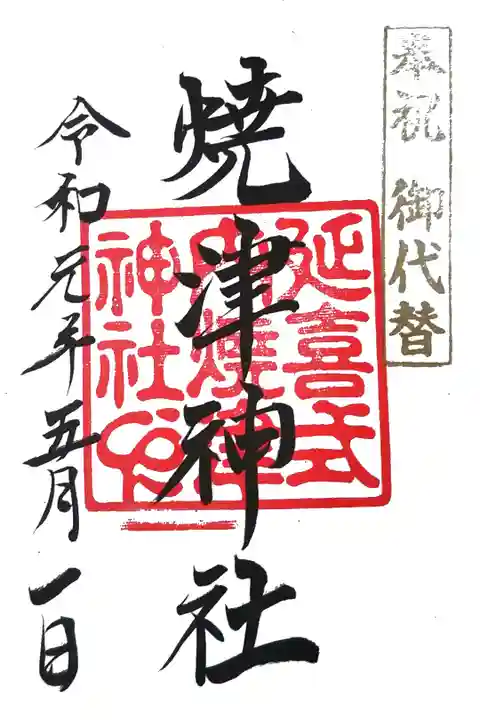 奉祝 御代替
焼津神社
延喜式
内焼津
神社印
令和元年五月一日